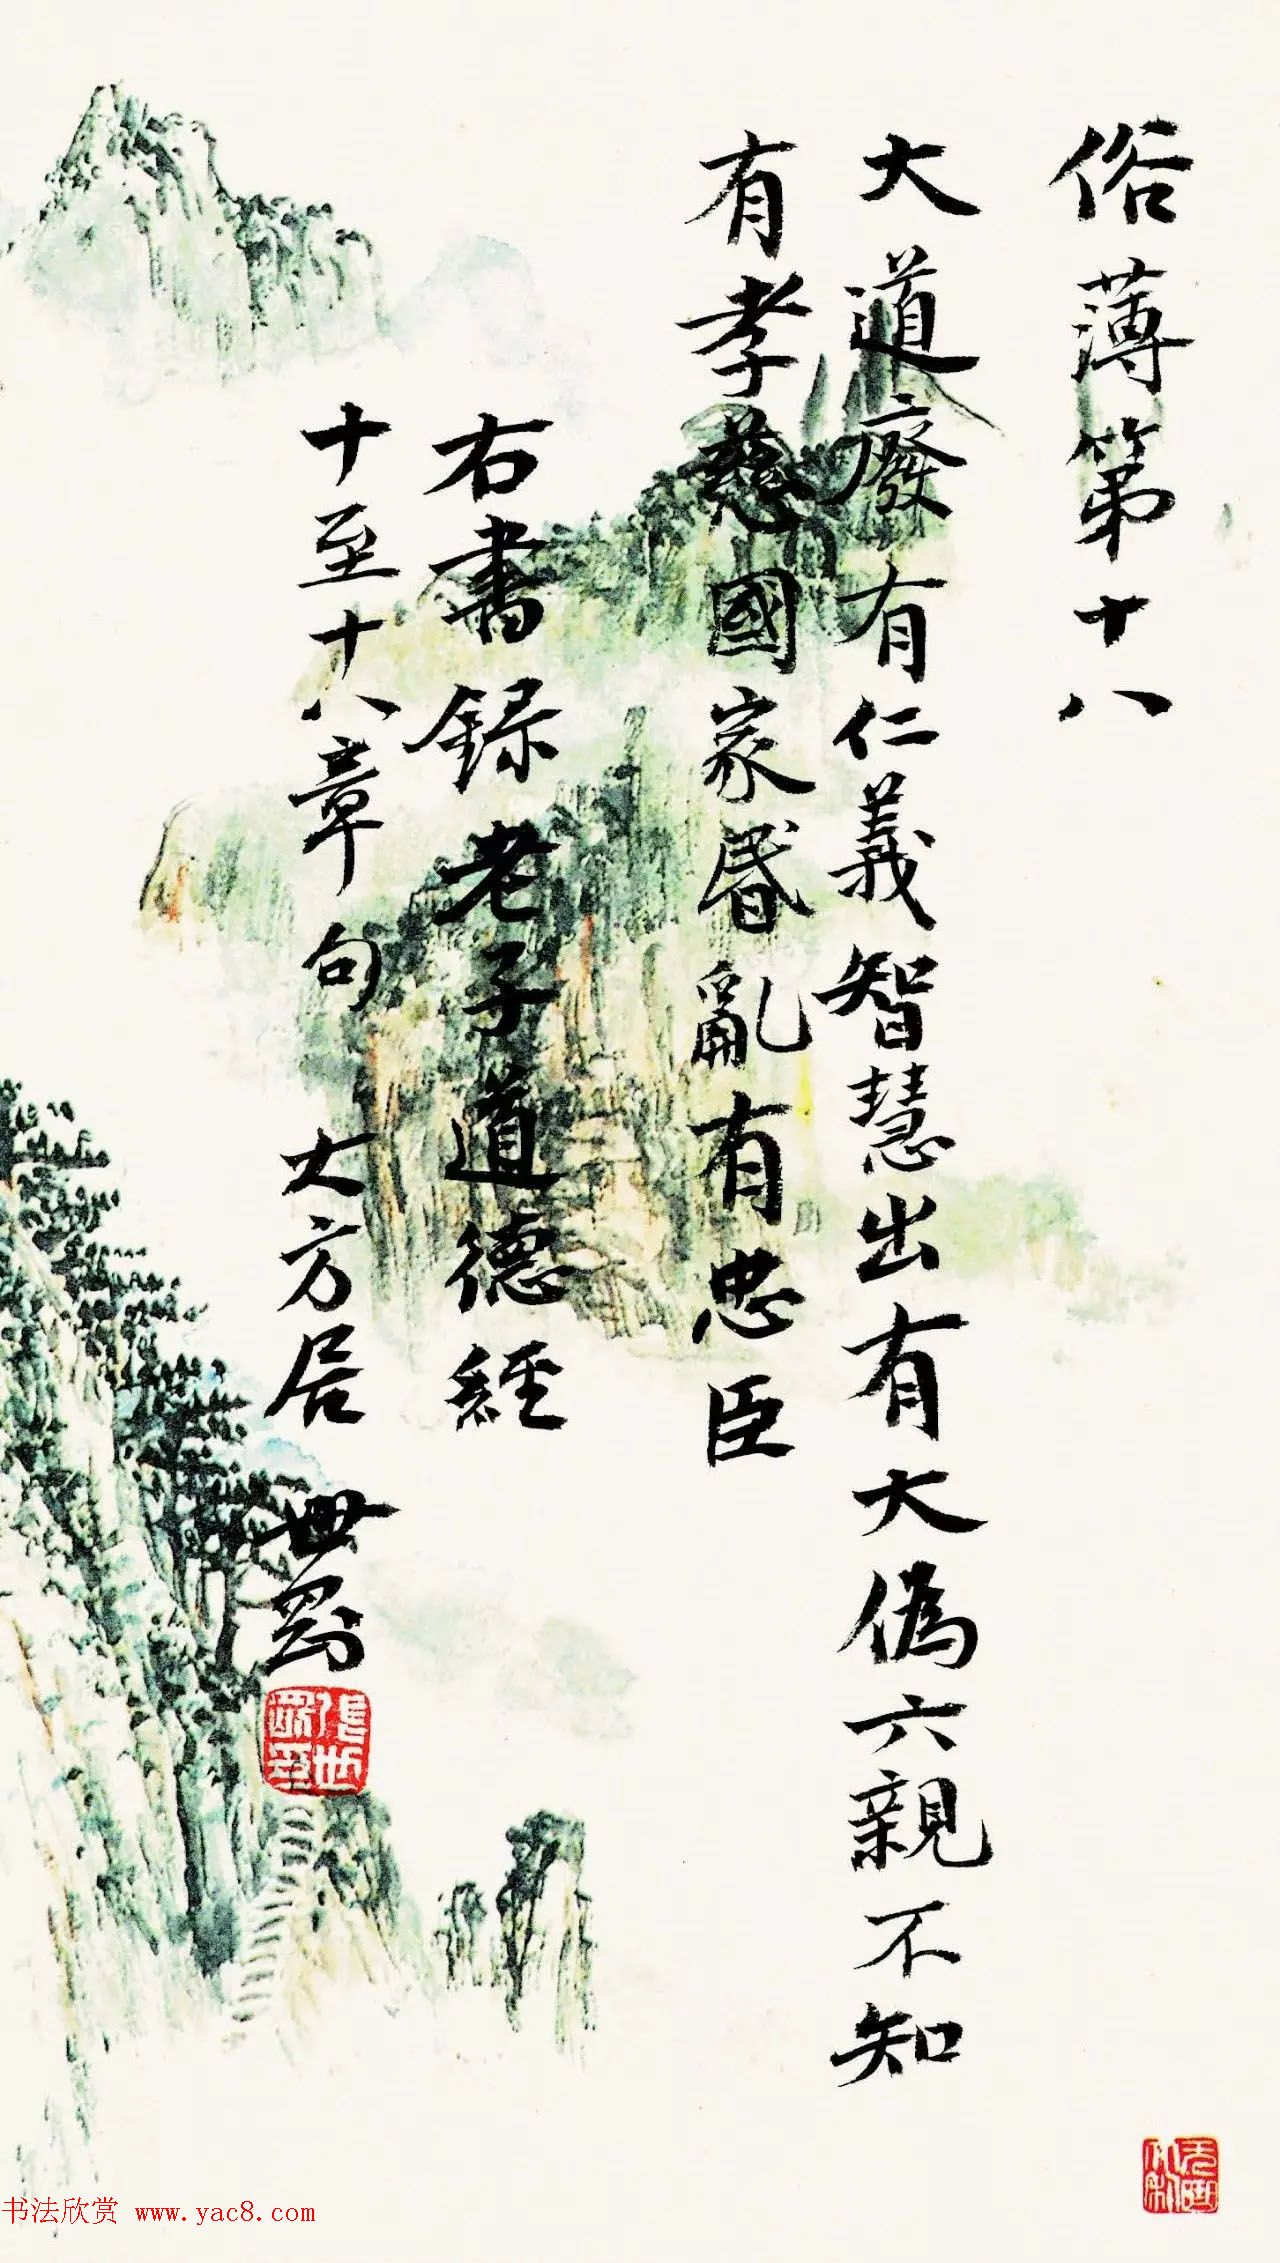 俗薄第十八
大道廢有仁義智慧出有大偽六親不知
有孝慈國家昬亂有忠臣
右書録老子道德經
十至十八章句 大方居 世剛
張世剛印
书法欣赏 www.yac8.com